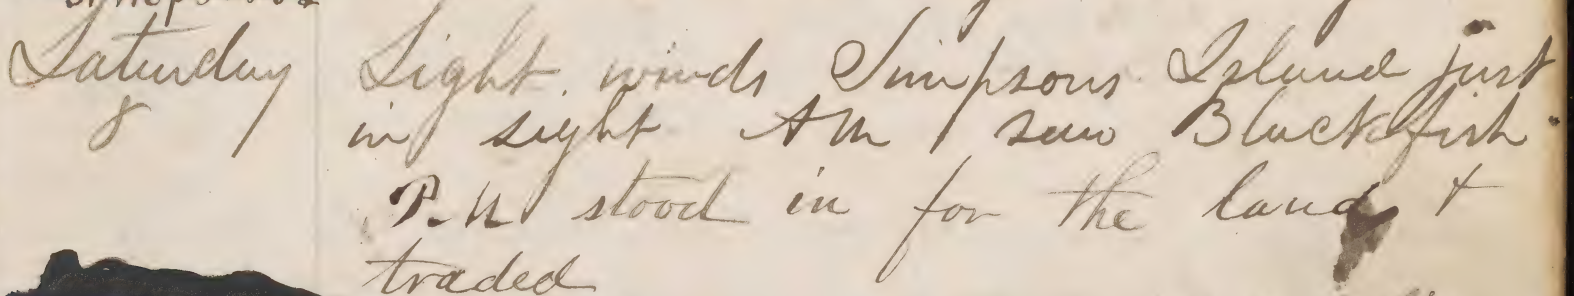 Saturday Light winds Simpsons Island just
8 in sight AM saw Blackfish
P.M stood in for the land &
traded